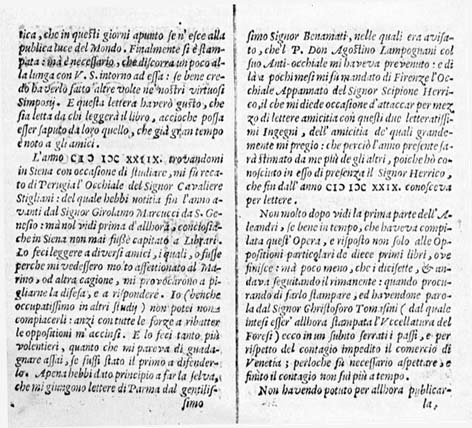 tica, che in questi giorni apunto se n'esce alla
publica luce del Mondo. Finalmente si è stam-
pata: ma è necessario, che discorra un poco al-
la lunga con V. S. intorno ad essa: se bene cre-
do haverlo fatto altre volte ne' nostri virtuosi
Simposij. E questa lettera haverò gusto, che
sia letta da chi leggerà il libro, acciochè possa
esser saputo da loro quello, che già gran tempo
è noto a gli amici.
L'anno CIↃ IↃC XXIIX. trovandomi
in Siena con occasione di studiare, mi fu reca-
to di Perugia l'Occhiale del Signor Cavaliere
Stigliani: del quale hebbi notitia fin l'anno a-
vanti dal Signor Girolamo Marcucci da S. Ge-
nesio: ma nol vidi prima d'allhora, conciosia-
che in Siena non mai fusse capitato a Librari.
Lo feci leggere a diversi amici, i quali, o fusse
perche mi vedessero mo'to affettionato al Ma-
rino, od altra cagione, mi provocarono a pi-
gliarne la difesa, e a rispondere. Io (benche
occupatissimo in altri studij) non potei non a
compiacerli: anzi con tutte le forze a ribatter
le oppositioni m'accinsi. E lo feci tanto più
volentieri, quanto che mi pareva di guada-
gnare assai, se fussi stato il primo a difender-
lo. Apena hebbi dato principio a far la selva,
che mi giungono lettere di Parma dal gentilis-
simo
simo Signor Benamati, nelle quali era avisa-
to, che'l P. Don Agostino Lampognani col
suo Anti-occhiale mi haveva prevenuto: e di
là a pochi mesi mi fu mandato di Firenze l'Oc-
chiale Appannato del Signor Scipione Herri-
co, il che mi diede occasione d'attaccar per mez-
zo di lettere amicitia con questi due letteratissi-
mi Ingegni, dell'amicitia de' quali grande-
mente mi pregio: che perciò l'anno presente sa-
rà stimato da me più de gli altri, poiche hò co-
nosciuto in esso di presenza il Signor Herrico,
che fin dall'anno CIↃ IↃC XXIX. conosceva
per lettere.
Non molto dopo vidi la prima parte dell'A-
leandri, se bene in tempo, che haveva compi-
lata quest'Opera, e risposto non solo alle Op-
positioni particolari de diece primi libri, ove
finisce: ma poco meno, che i dicisette, & an-
dava seguitando il rimanente: quando procu-
rando di farlo stampare, ed havendone paro-
la dal Signor Christoforo Tomasini (dal quale
intesi esser'allhora stampata l'Uccellatura del
Foresi) ecco in un subito serrati i passi, e per
rispetto del contagio impedito il comercio di
Venetia; perloche sù necessario aspettare, e
finito il contagio non fui più a tempo.
Non havendo potuto per allhora publicar-
la,